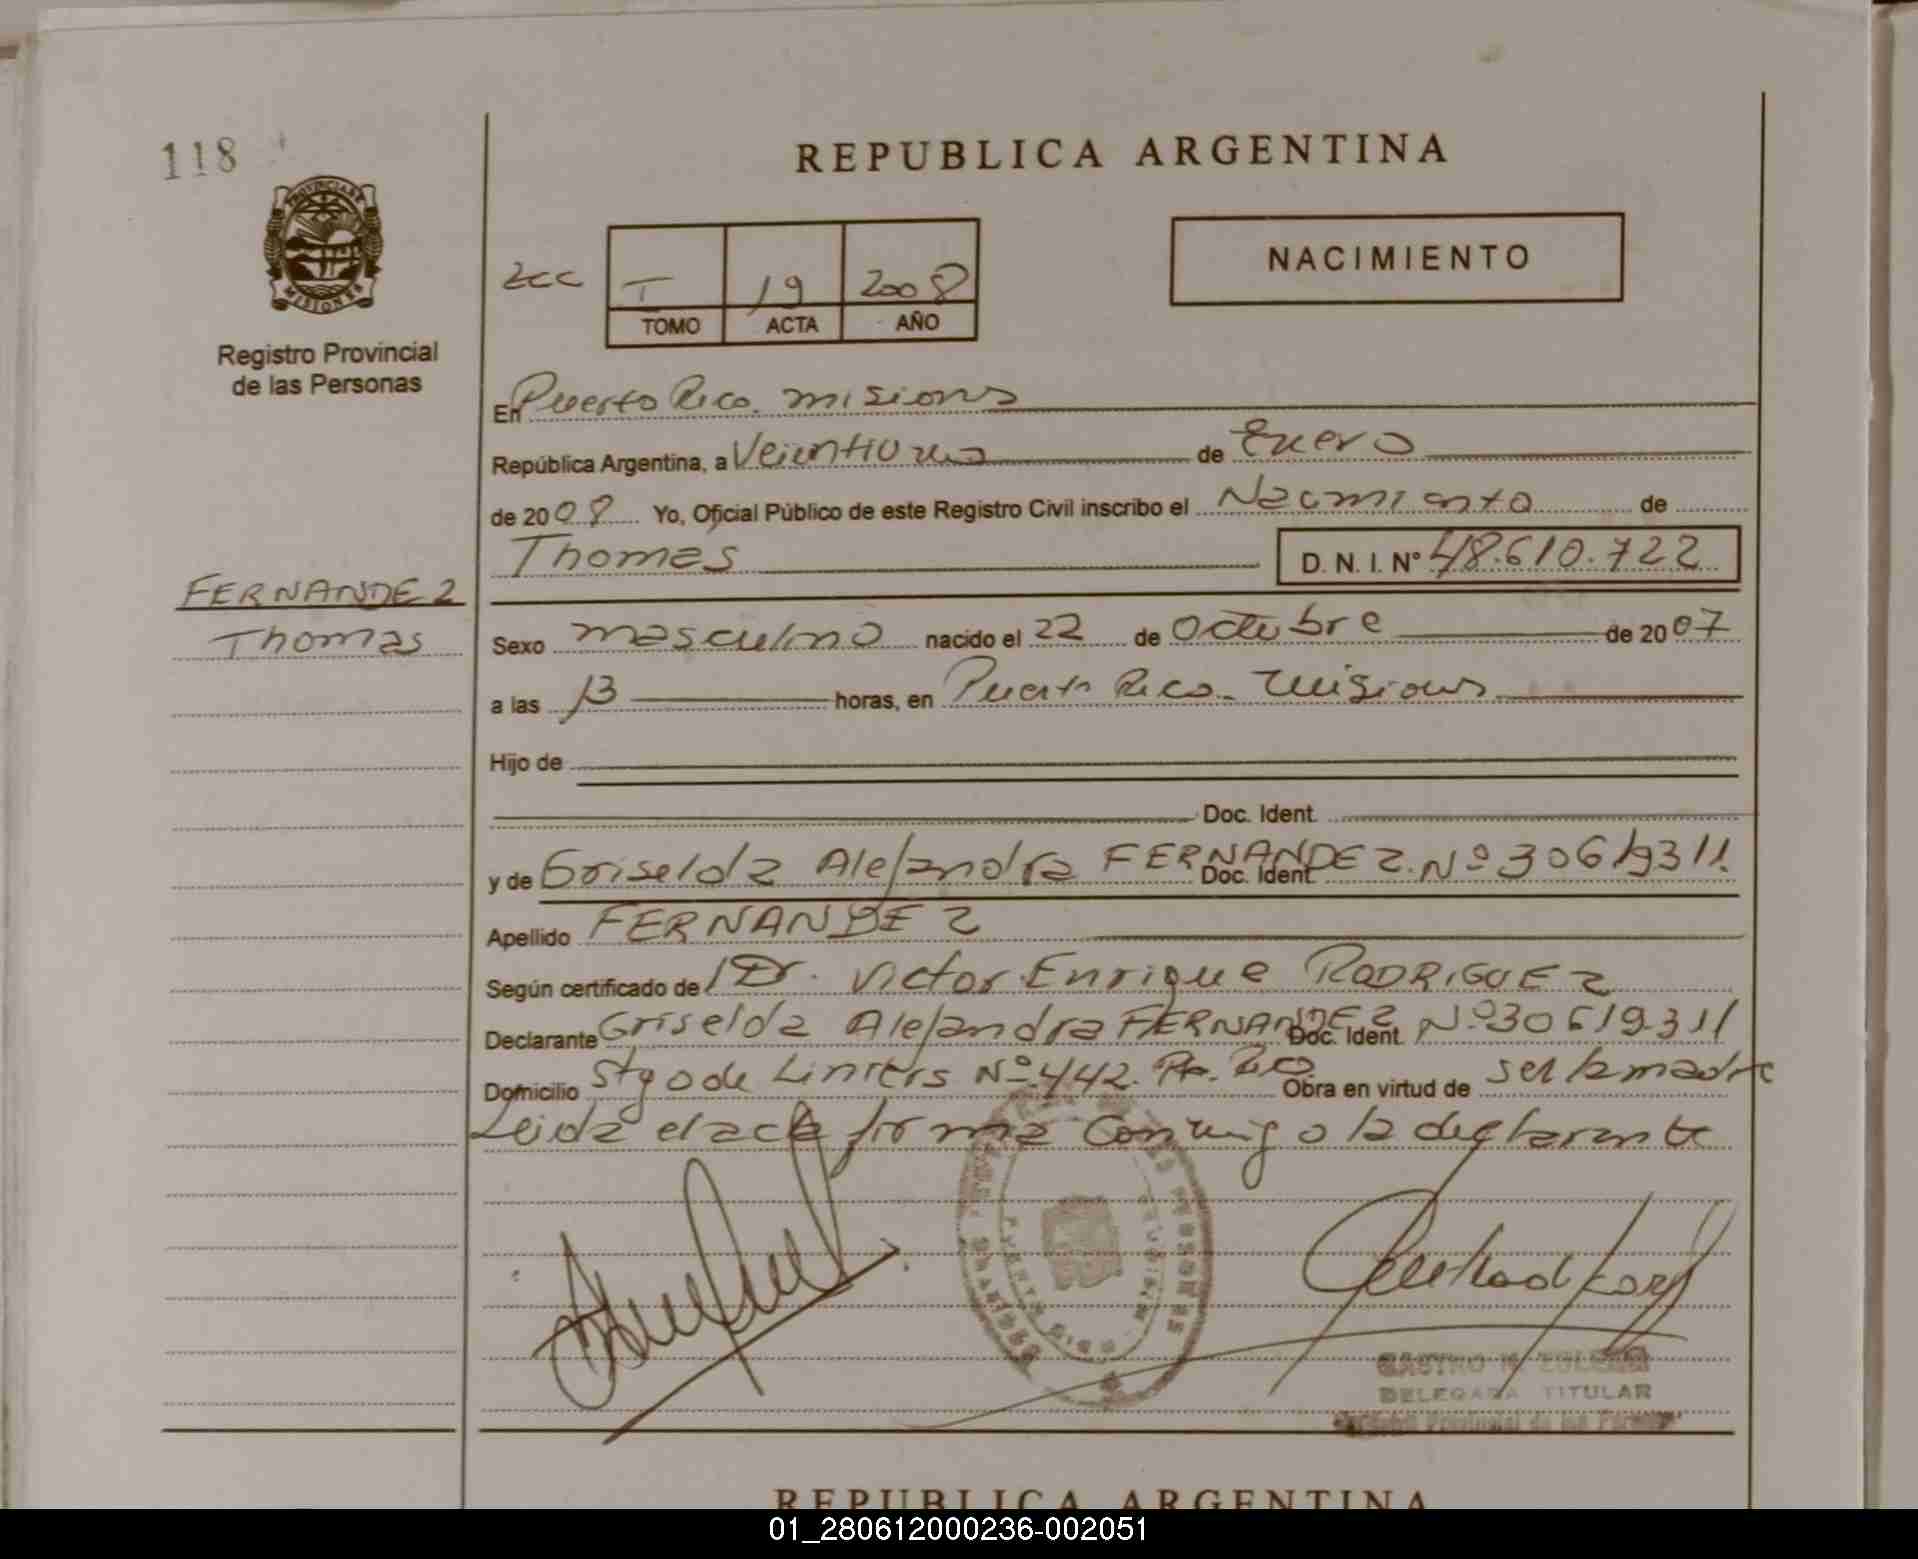 118
REPUBLICA ARGENTINA
PROVINCIA DE
MISIONES
Registro Provincial
de las Personas
T 19 2008
TOMO ACTA AÑO
NACIMIENTO
En Puerto Rico. Misiones
República Argentina, a Veintiuno de Enero
de 2008 Yo, Oficial Público de este Registro Civil inscribo el Nacimiento de
Thomas D. N. I. Nº 48.610.722
FERNANDEZ
Thomas
Sexo masculino nacido el 22 de Octubre de 2007
a las 13 horas, en Puerto Rico - Misiones
Hijo de
Doc. Ident.
y de Griselda Alejandra FERNANDEZ. Doc. Ident. Nº 30619311.
Apellido FERNANDEZ
Según certificado de Dr. Victor Enrique RODRIGUEZ
Declarante Griselda Alejandra FERNANDEZ Doc. Ident. Nº 30619311
Domicilio Stgo de Liniers Nº 442. Pto. Rico Obra en virtud de ser la madre
Leida el acta firma conmigo la declarante
DELEGADA TITULAR
Provincial de las Personas
REPUBLICA ARGENTINA
01_280612000236-002051